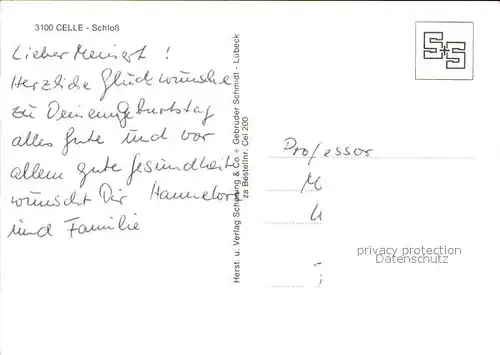 3100 CELLE - Schloß
Lieber Meinert !
Herzliche Glückwünsche
zu Deinem Geburtstag
alles Gute und vor
allem gute Gesundheit
wünscht Dir Hannelore
und Familie
Herst. u. Verlag Schöning & Co + Gebrüder Schmidt - Lübeck
za Bestellnr. Cel 200
S+S
Professor
M
privacy protection
Datenschutz